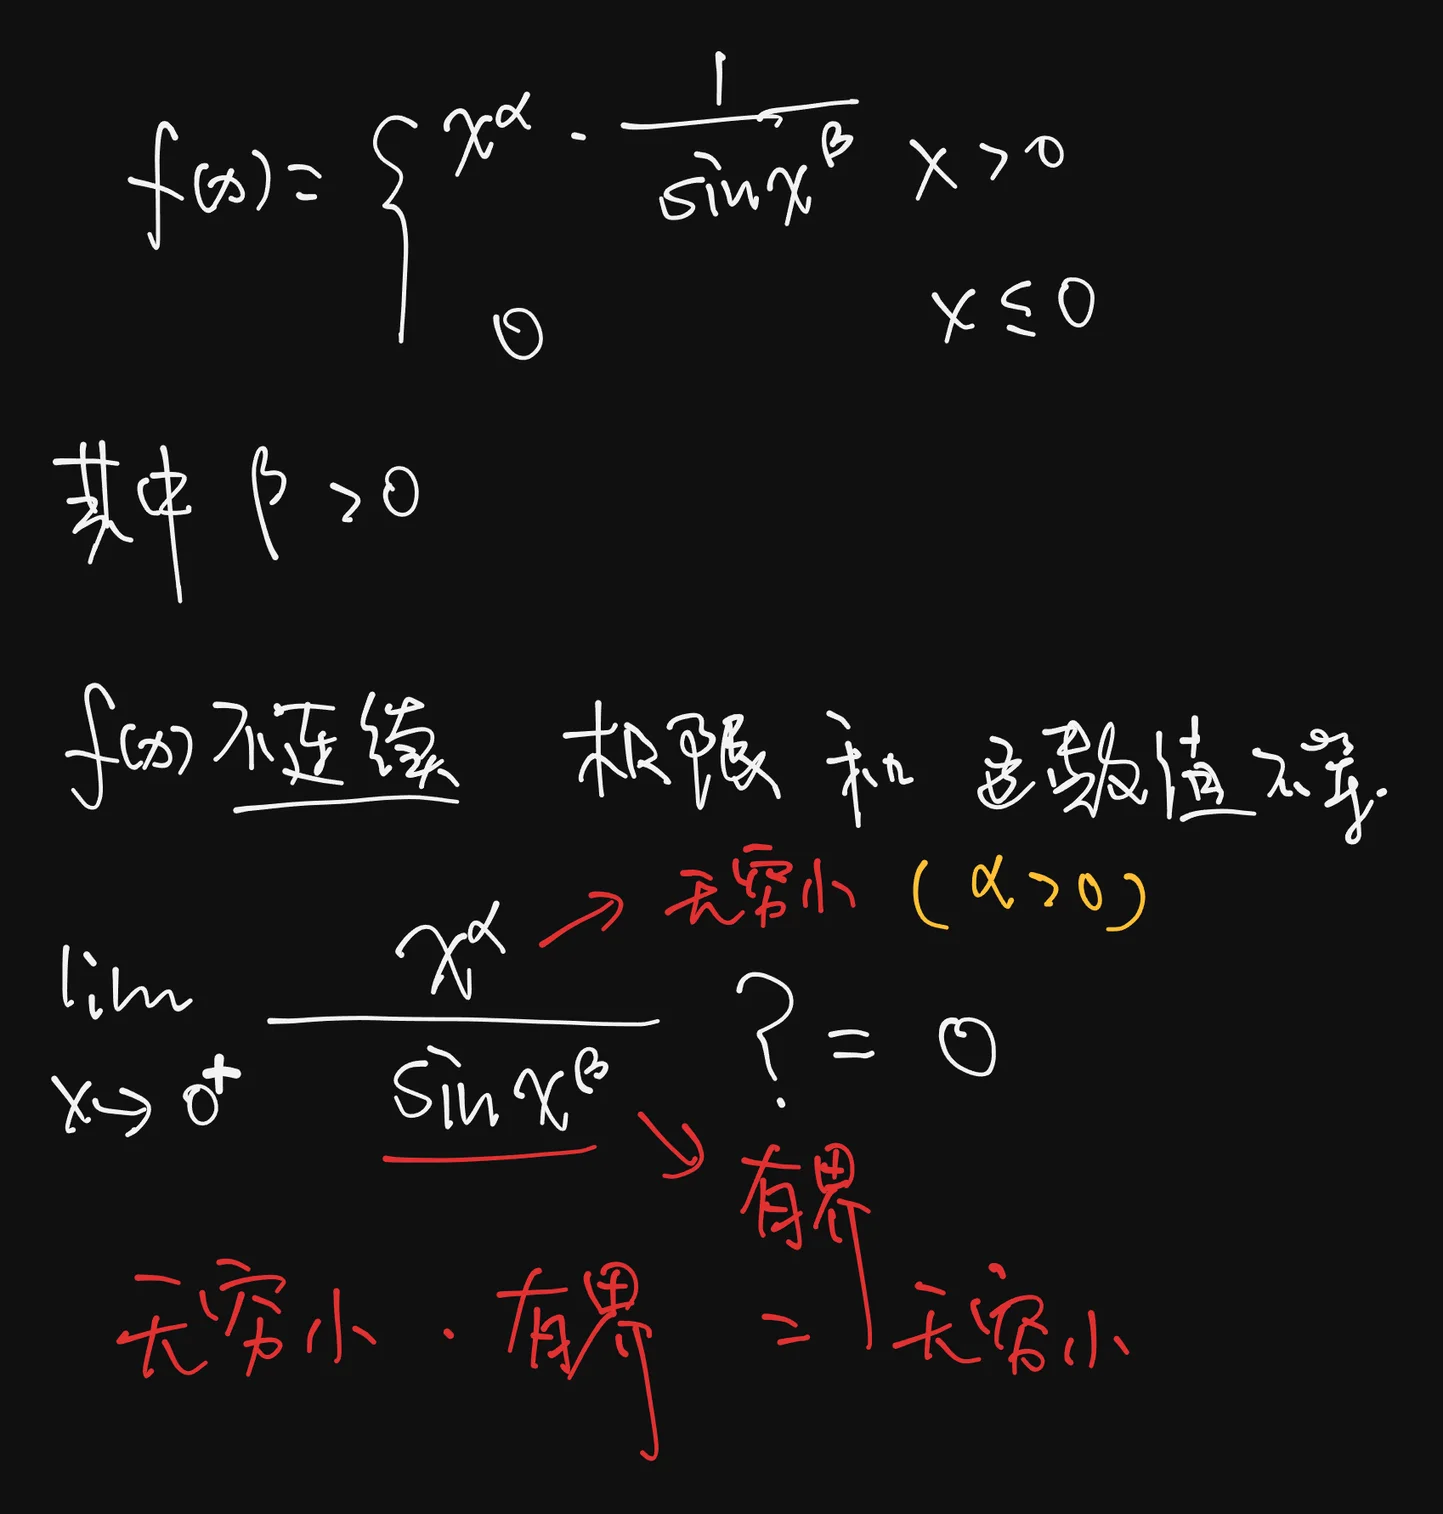 f(x) = { x^α · 1/sin x^β x > 0
0 x ≤ 0
其中 β > 0
f(x) 不连续 极限 和 函数值不等.
→ 无穷小 (α > 0)
lim x→0⁺ x^α / sin x^β ? = 0
→ 有界
无穷小 · 有界 = 无穷小